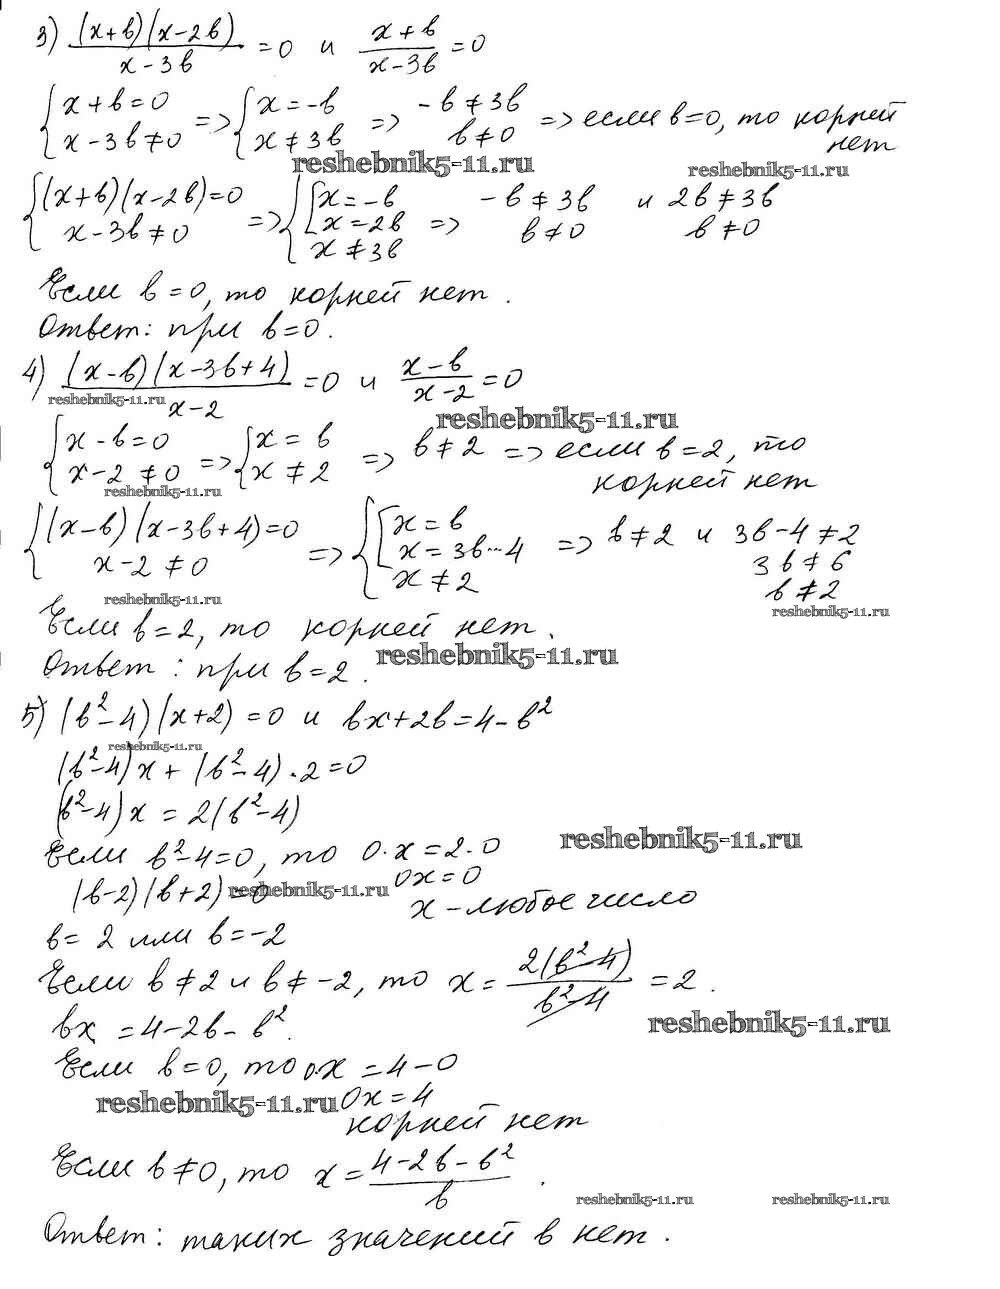 3) (x+b)(x-2b)/(x-3b) = 0 и (x+b)/(x-3b) = 0
{x+b=0 => {x=-b => -b≠3b => если b=0, то корней
{x-3b≠0 {x≠3b b≠0 нет
reshebnik5-11.ru reshebnik5-11.ru
{(x+b)(x-2b)=0 => {[x=-b => -b≠3b и 2b≠3b
{x-3b≠0 [x=2b b≠0 b≠0
x≠3b
Если b=0, то корней нет.
Ответ: при b=0.
4) (x-b)(x-3b+4)/(x-2) = 0 и (x-b)/(x-2) = 0
reshebnik5-11.ru reshebnik5-11.ru
{x-b=0 => {x=b => b≠2 => если b=2, то
{x-2≠0 {x≠2 корней нет
reshebnik5-11.ru
{(x-b)(x-3b+4)=0 => {[x=b => b≠2 и 3b-4≠2
{x-2≠0 [x=3b-4 3b≠6
x≠2 b≠2
reshebnik5-11.ru reshebnik5-11.ru
Если b=2, то корней нет.
Ответ: при b=2.
reshebnik5-11.ru
5) (b²-4)(x+2)=0 и bx+2b=4-b²
reshebnik5-11.ru
(b²-4)x+(b²-4)·2=0
(b²-4)x=2(b²-4)
reshebnik5-11.ru
Если b²-4=0, то 0·x=2·0
(b-2)(b+2)=0 0x=0
reshebnik5-11.ru
x-любое число
b=2 или b=-2
Если b≠2 и b≠-2, то x=2(b²-4)/(b²-4)=2.
reshebnik5-11.ru
bx=4-2b-b².
Если b=0, то 0x=4-0
reshebnik5-11.ru
0x=4
корней нет
Если b≠0, то x=(4-2b-b²)/b.
reshebnik5-11.ru reshebnik5-11.ru
Ответ: таких значений b нет.